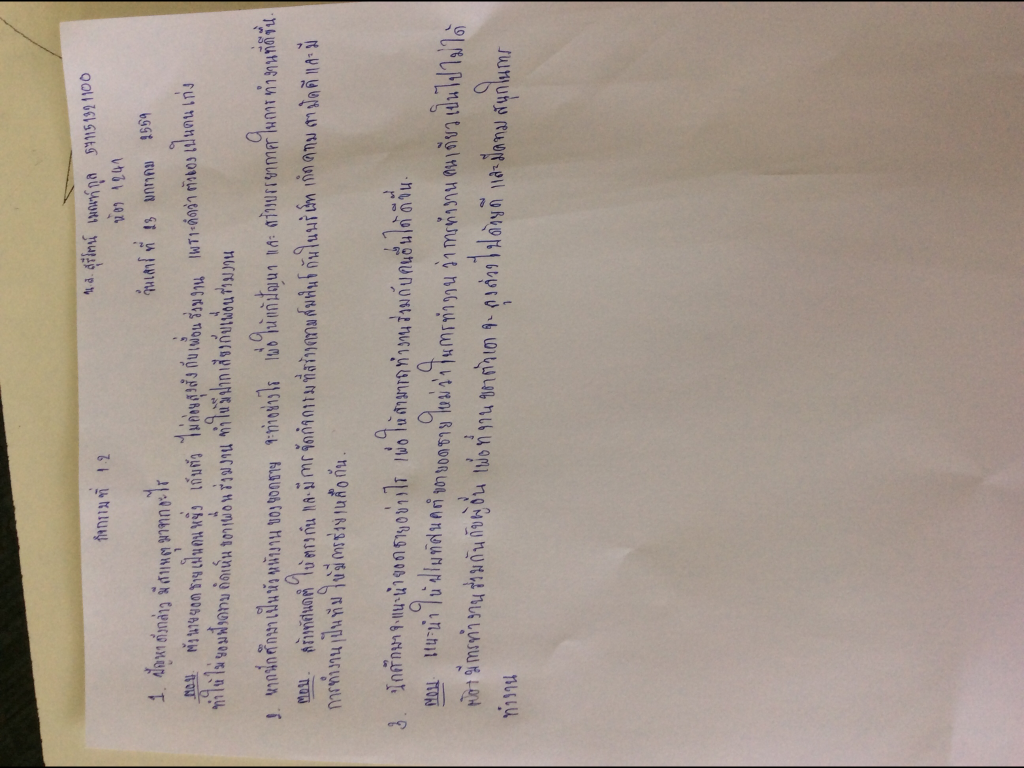 น.ส. สุรีรัตน์ 57115921100
กิจกรรมที่ 1.2 ห้อง 1241
วันเสาร์ ที่ 23 มกราคม 2559
1. ปัญหาดังกล่าว มีสาเหตุมาจากอะไร
ตอบ ตัวนายยอดชายเป็นคนหยิ่ง เก็บตัว ไม่ค่อยสุงสิงกับเพื่อนร่วมงาน เพราะคิดว่าตัวเองเป็นคนเก่ง
ทำให้ไม่ยอมฟังความคิดเห็นของเพื่อนร่วมงาน ทำให้มีปากเสียงกับเพื่อนร่วมงาน
2. หากนักศึกษาเป็นหัวหน้างาน ของยอดชาย จะทำอย่างไร เพื่อให้แก้ปัญหา และ สร้างบรรยากาศในการทำงานที่ดีขึ้น.
ตอบ สร้างทัศนคติให้ตรงกัน และมีการจัดกิจกรรมที่สร้างความสัมพันธ์กันในบริษัท เกิดความสามัคคีและมี
การทำงานเป็นทีม ให้มีการช่วยเหลือกัน.
3. นักศึกษาจะแนะนำยอดชายอย่างไร เพื่อให้สามารถทำงานร่วมกับคนอื่นได้ดีขึ้น.
ตอบ แนะนำให้ปรับทัศนคติของยอดชายใหม่ว่าในการทำงาน ว่าการทำงานคนเดียวเป็นไปไม่ได้
ต้องมีการทำงานร่วมกันกับผู้อื่น เพื่อที่งานของตัวเองจะลุล่วงไปด้วยดี และมีความสนุกในการ
ทำงาน